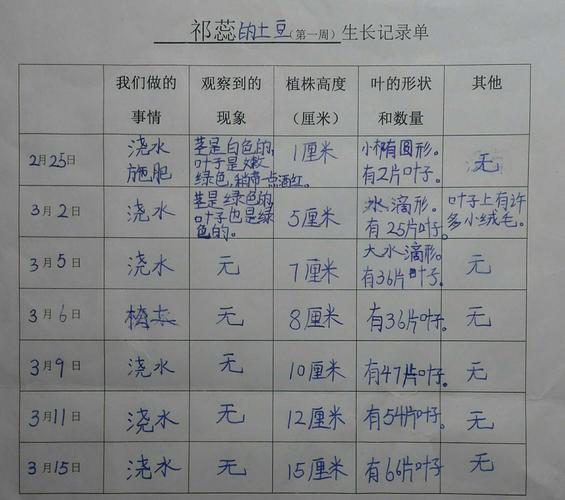 祁蕊的土豆(第一周)生长记录单
我们做的事情 观察到的现象 植株高度(厘米) 叶的形状和数量 其他
2月25日 浇水 施肥 茎是白色的,叶子是嫩绿色,稍带一点酒红。 1厘米 小椭圆形。有2片叶子。 无
3月2日 浇水 茎是绿色的,叶子也是绿色的。 5厘米 水滴形。有25片叶子。 叶子上有许多小绒毛。
3月5日 浇水 无 7厘米 大水滴形。有36片叶子。 无
3月6日 无 8厘米 有36片叶子。 无
3月9日 浇水 无 10厘米 有47片叶子。 无
3月11日 浇水 无 12厘米 有54片叶子。 无
3月15日 浇水 无 15厘米 有66片叶子 无